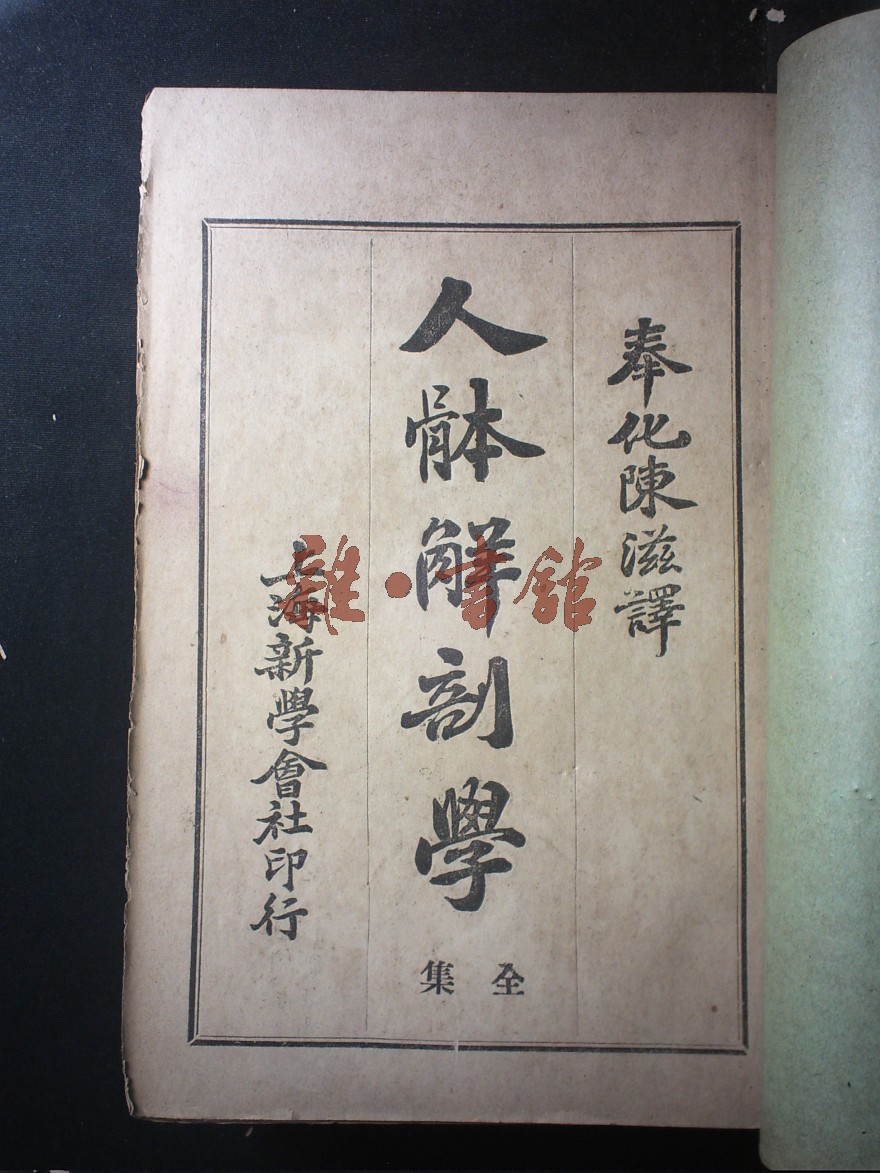 奉化陳滋譯
人骵解剖學
全集
上海新學會社印行
雜·書館